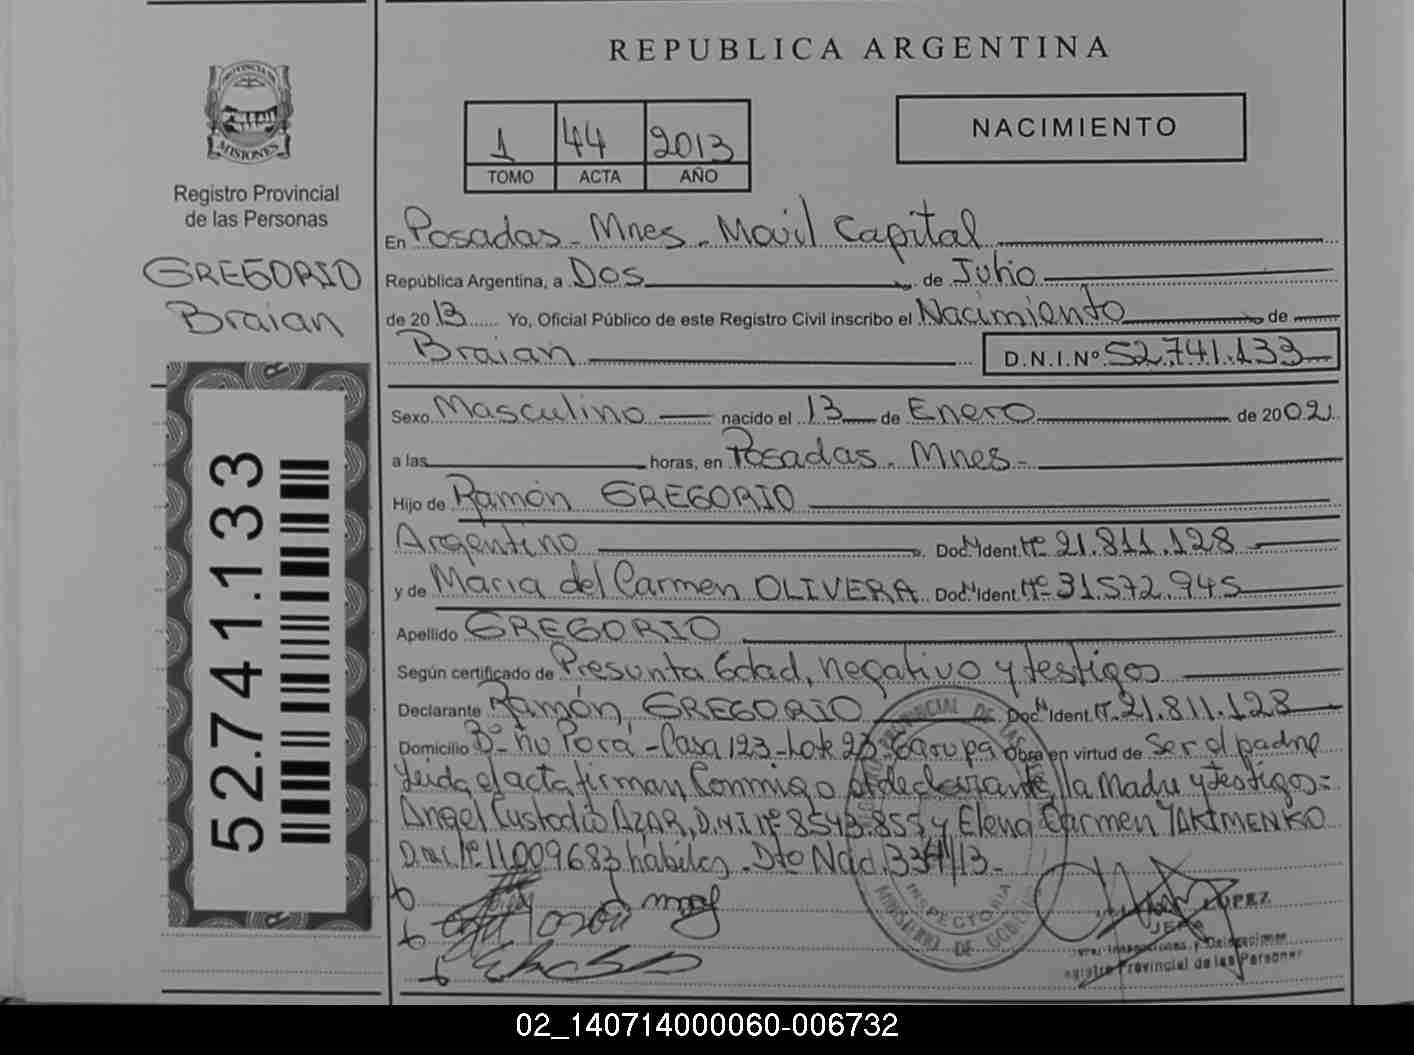 REPUBLICA ARGENTINA
PROVINCIA DE
MISIONES
Registro Provincial
de las Personas
GREGORIO
Braian
52.741.133
1 44 2013
TOMO ACTA AÑO
NACIMIENTO
En Posadas - Mnes - Movil Capital
República Argentina, a Dos de Julio
de 2013 Yo, Oficial Público de este Registro Civil inscribo el Nacimiento de
Braian D.N.I.Nº 52.741.133
Sexo Masculino nacido el 13 de Enero de 2002
a las horas, en Posadas - Mnes -
Hijo de Ramón GREGORIO
Argentino Doc. Ident. Nº 21.811.128
y de Maria del Carmen OLIVERA Doc. Ident. Nº 31.572.945
Apellido GREGORIO
Según certificado de Presunta Edad, negativo y testigos
Declarante Ramón GREGORIO Doc. Ident. Nº 21.811.128
Domicilio Bº Ñu Porá - Casa 123 - Lote 23 - Garupa Obra en virtud de Ser el padre
Leida el acta firman Conmigo el declarante, la Madre y testigos =
Angel Custodio AZAR, D.N.I Nº 8543.855 y Elena Carmen YAKIMENKO
D.N.I. Nº 11.009683 hábiles - Dto Nac 1334/13 -
INSPECTORIA
MINISTERIO DE GOBIERNO
LOPEZ
JEFE
Inspecciones y Delegaciones
Registro Provincial de las Personas
02_140714000060-006732